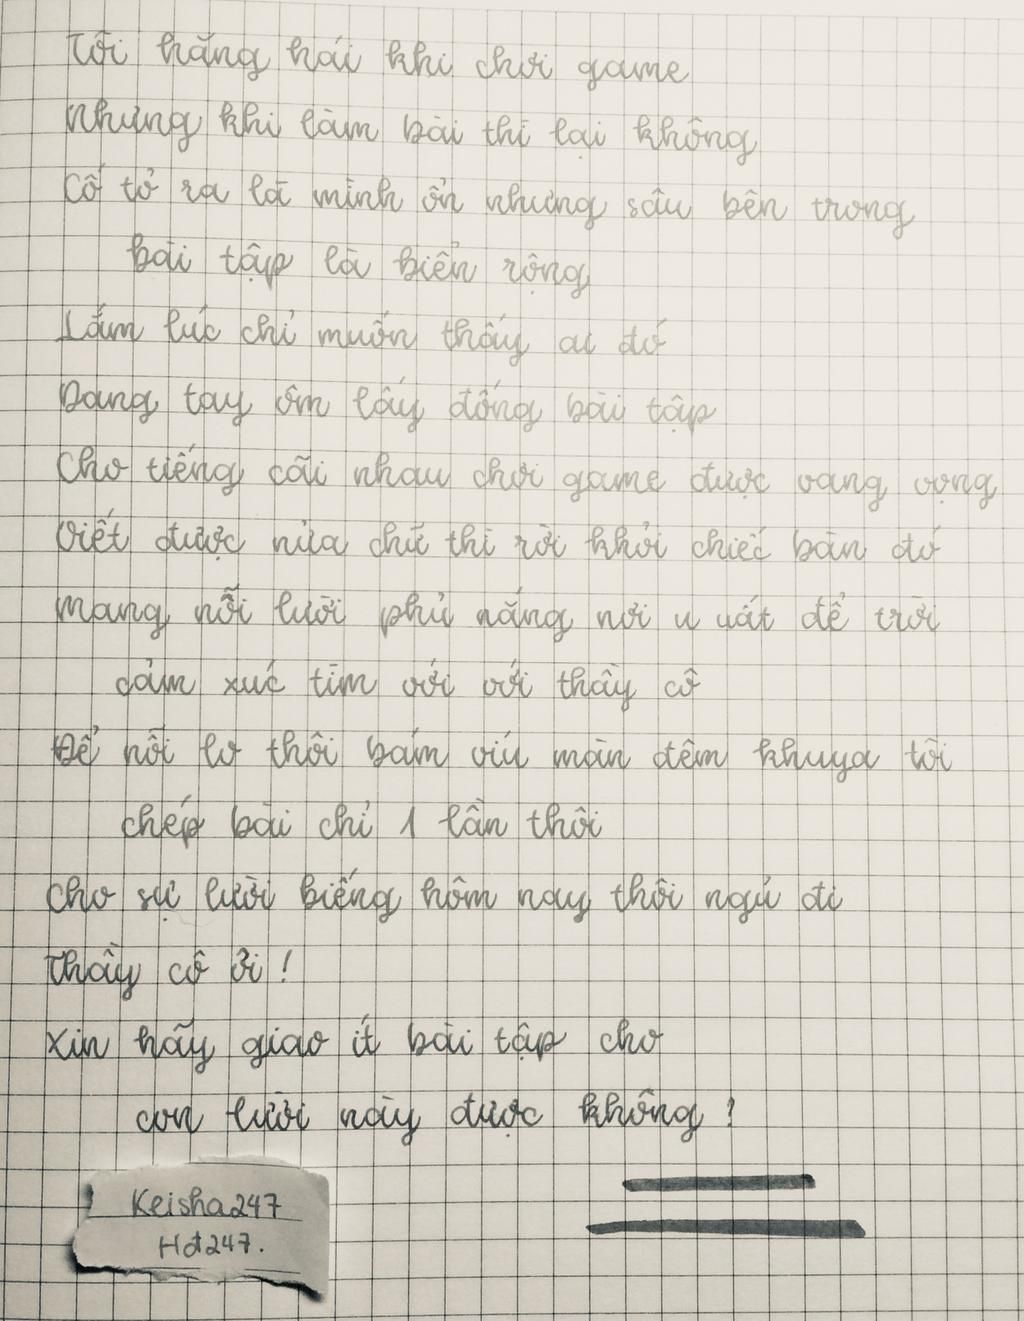 Tôi hăng hái khi chơi game
Nhưng khi làm bài thì lại không
Cố tỏ ra là mình ổn nhưng sâu bên trong
bài tập là biển rộng
Lắm lúc chỉ muốn thấy ai đó
Dang tay ôm lấy đống bài tập
Cho tiếng cãi nhau chơi game được vang vọng
Viết được nửa chữ thì rời khỏi chiếc bàn đó
Mang nỗi lười phủ nắng nơi u uất để trời
cảm xúc tìm với với thầy cô
Để nỗi lo thôi bám víu màn đêm khuya tôi
chép bài chỉ 1 lần thôi
Cho sự lười biếng hôm nay thôi ngủ đi
Thầy cô ơi !
Xin hãy giao ít bài tập cho
con lười này được không ?
Keisha247
Hđ247.